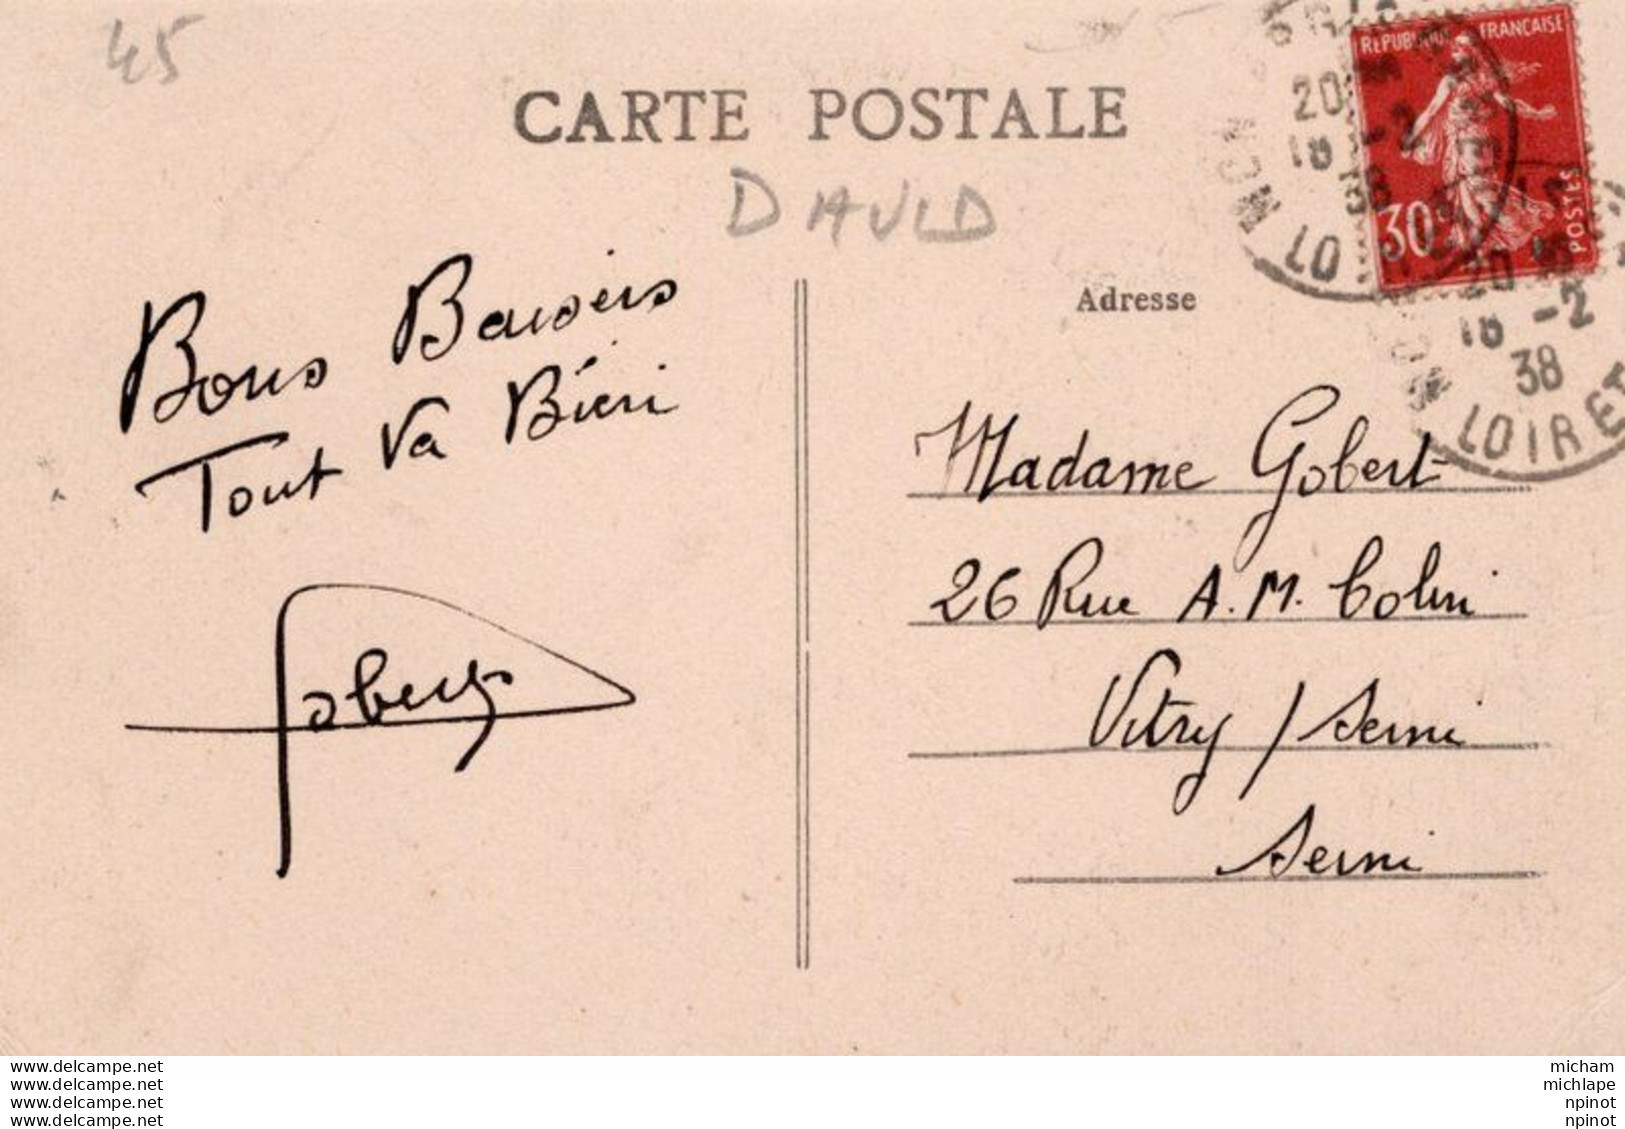 45
CARTE POSTALE
DAVID
RÉPUBLIQUE FRANÇAISE
30c
POSTES
20
18 -2
38
LOIRET
18 -2
38
LOIRET
Adresse
Bons Baisers
Tout Va Bien
Gobert
Madame Gobert
26 Rue A.M. Colin
Vitry / Seine
Seine
www.delcampe.net
www.delcampe.net
www.delcampe.net
www.delcampe.net
micham
michlape
npinot
npinot